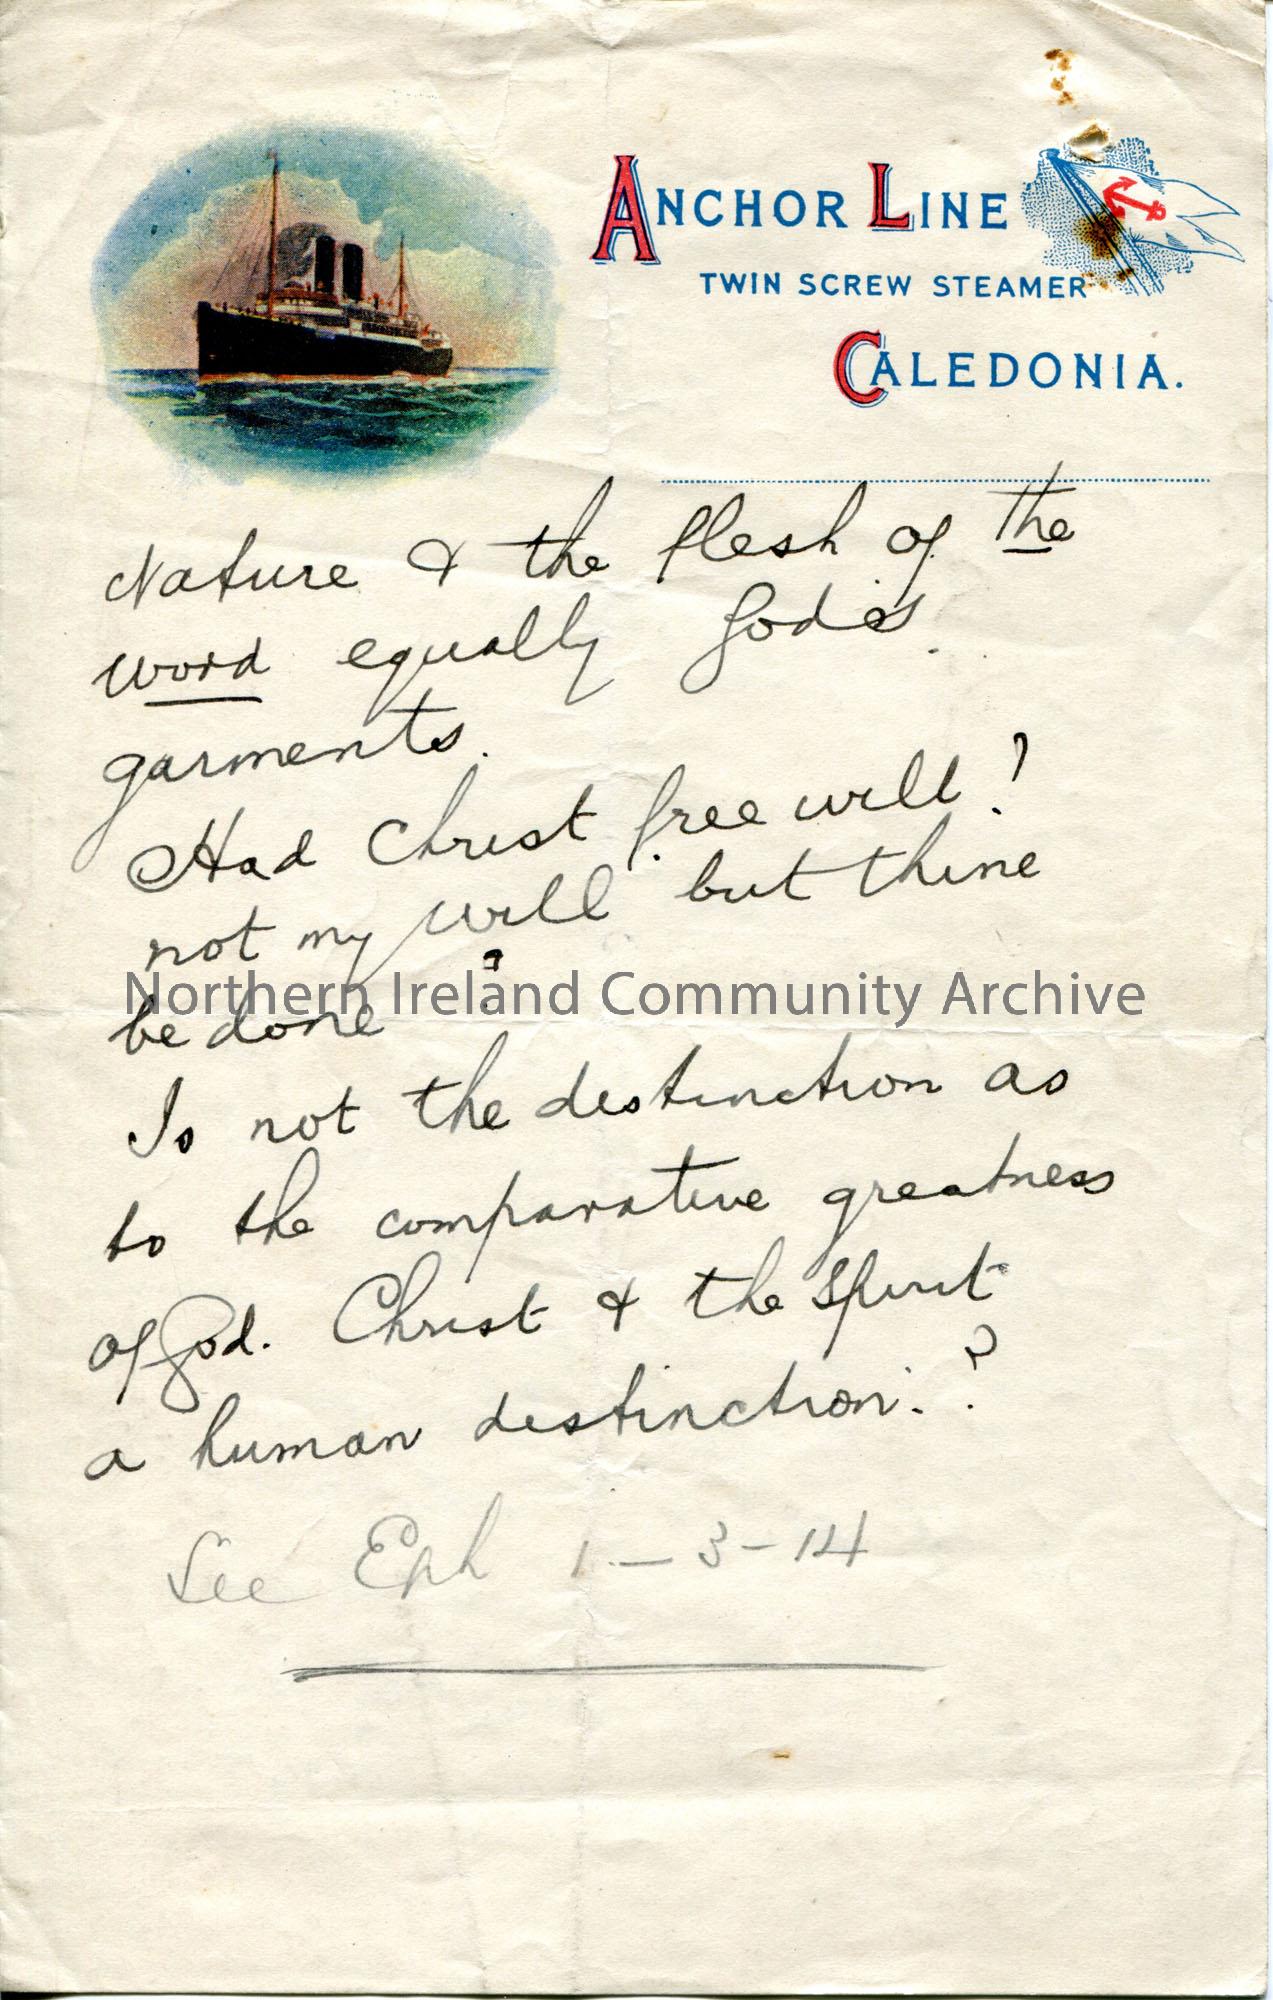 ANCHOR LINE
TWIN SCREW STEAMER
CALEDONIA.
Nature & the flesh of the
word equally God's
garments.
Had Christ free will?
not my will but thine
be done?
Northern Ireland Community Archive
Is not the destinction as
to the comparative greatness
of God. Christ & the Spirit
a human destinction. ?
See Eph 1 - 3 - 14